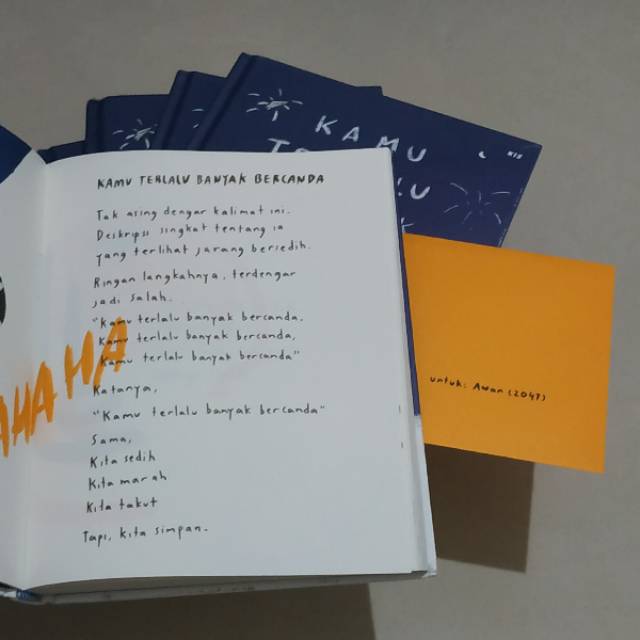 KAMU TERLALU BANYAK BERCANDA
Tak asing dengar kalimat ini.
Deskripsi singkat tentang ia
yang terlihat jarang bersedih.
Ringan langkahnya, terdengar
jadi salah.
"Kamu terlalu banyak bercanda,
Kamu terlalu banyak bercanda,
Kamu terlalu banyak bercanda"
Katanya,
"Kamu terlalu banyak bercanda"
Sama,
Kita sedih
Kita marah
Kita takut
Tapi, kita simpan.
AHAHA
KAMU
untuk: Awan (2047)